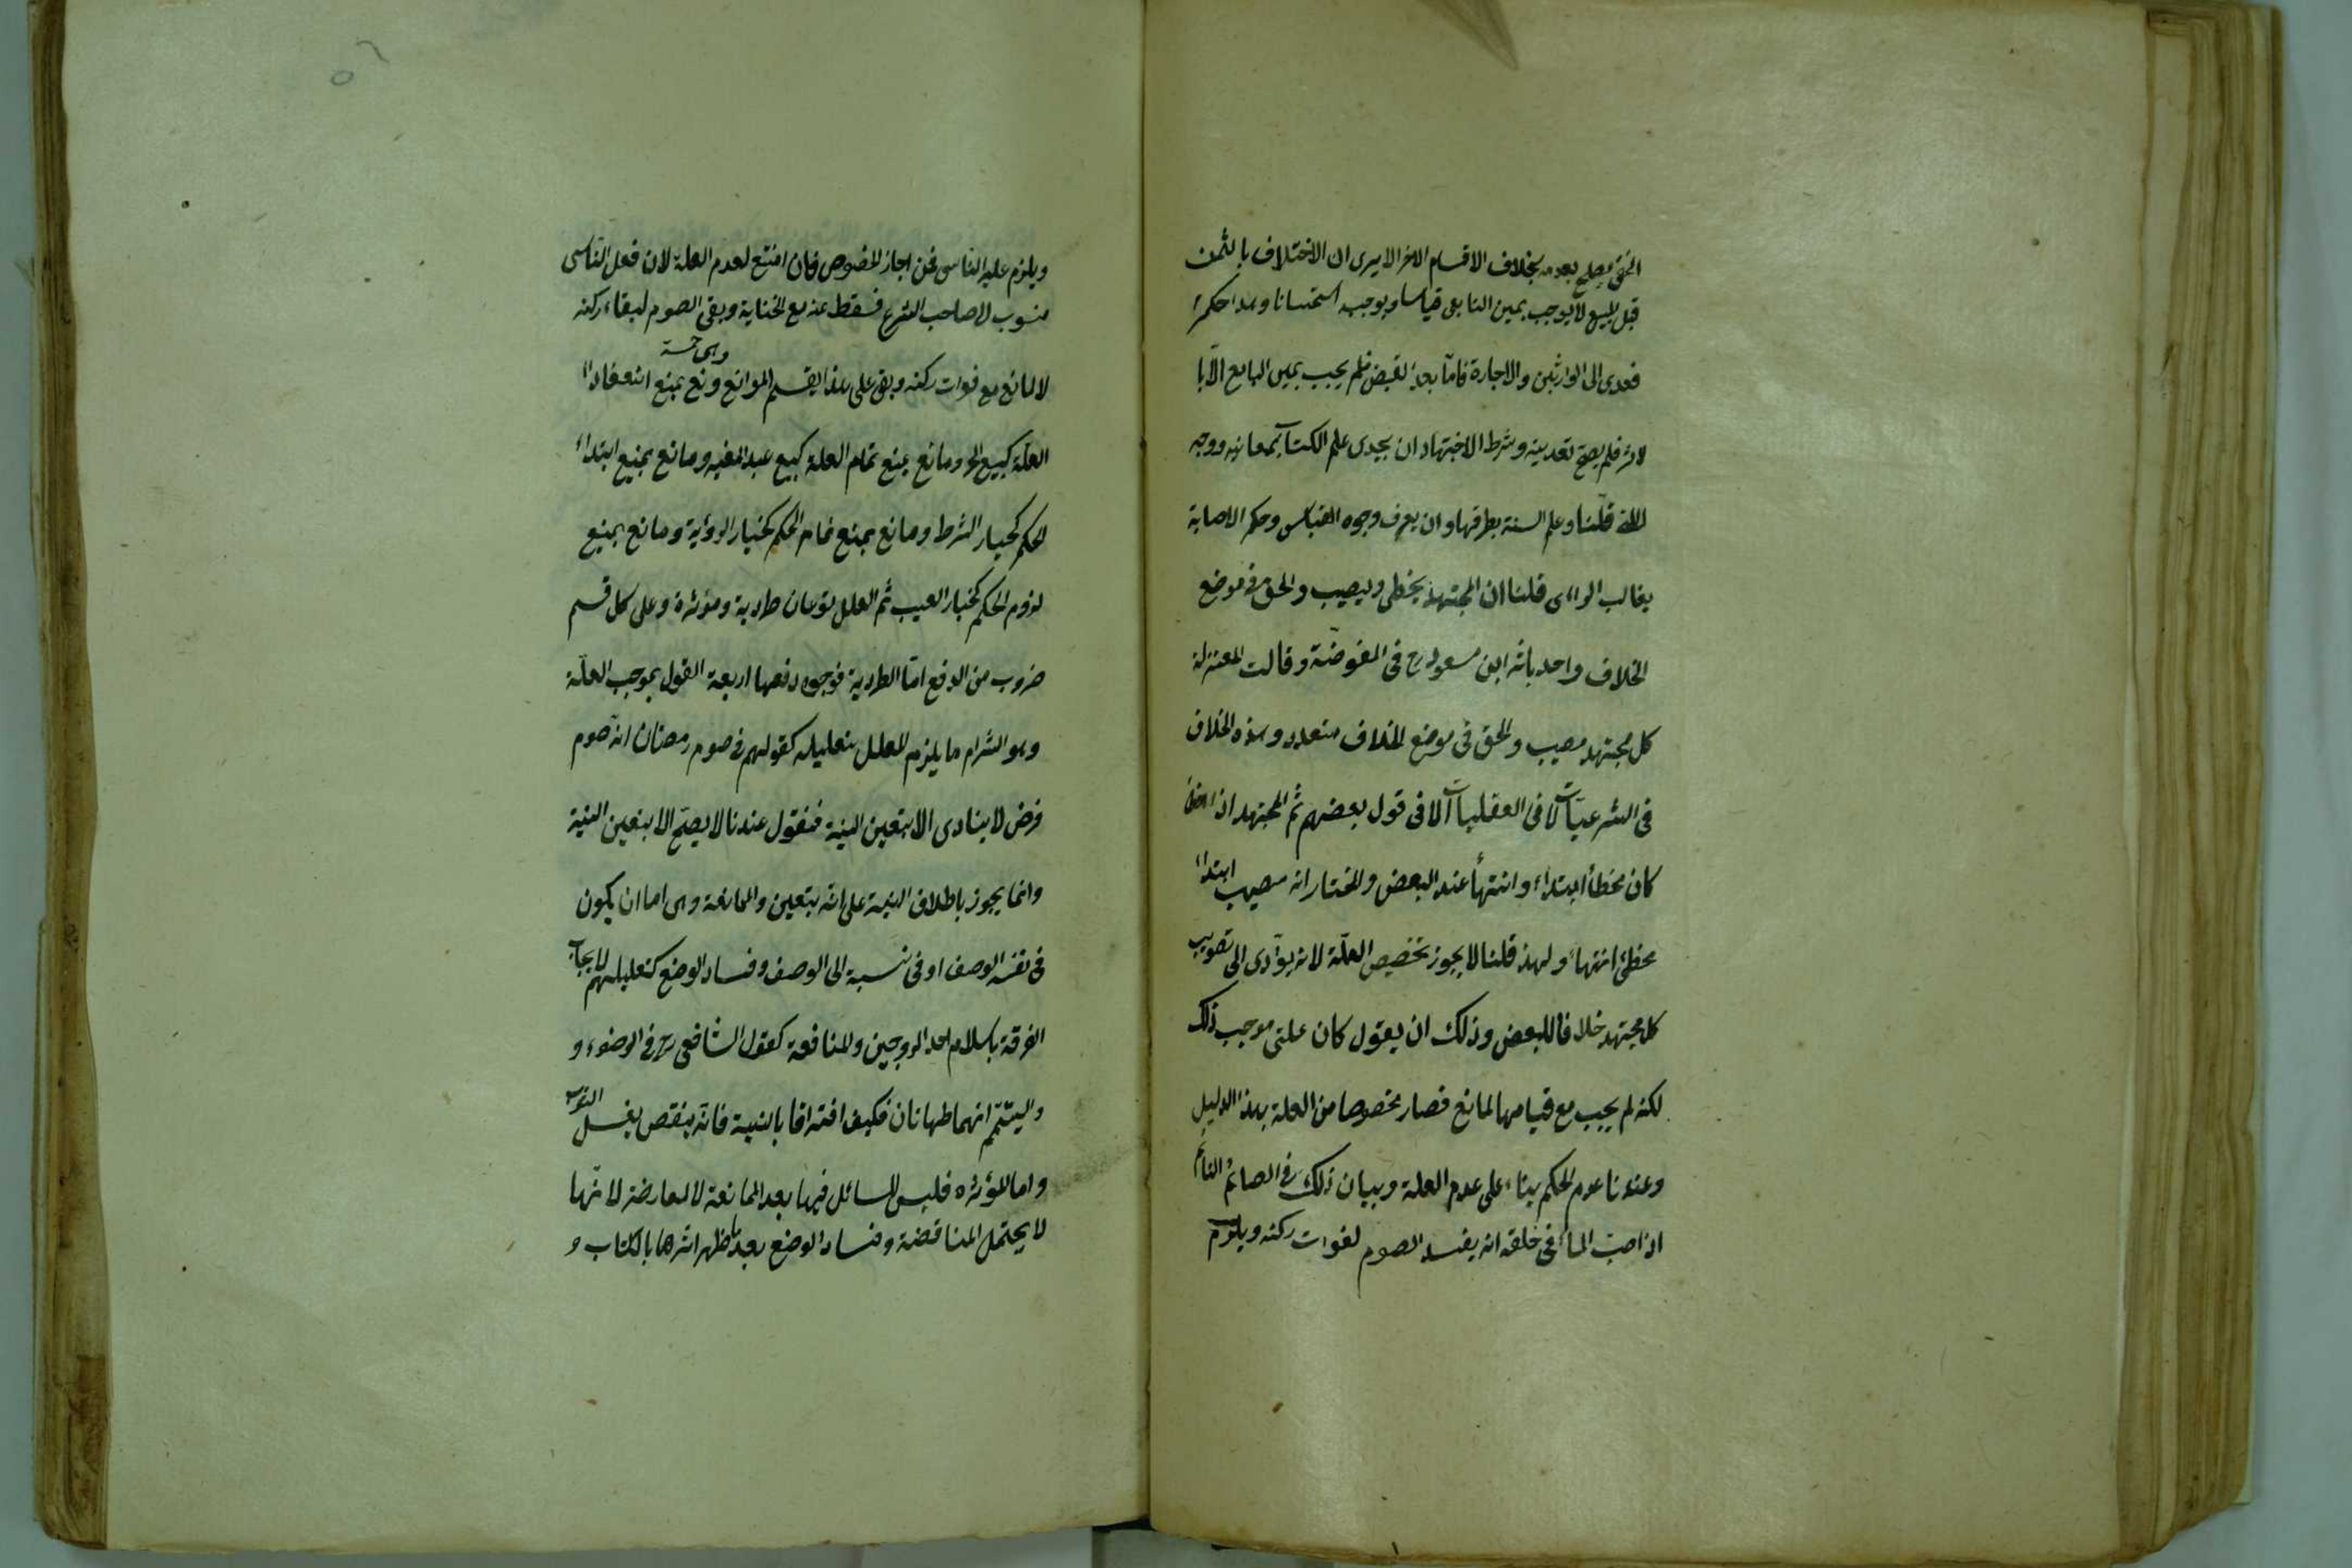 الخفي يصلح بعده بخلاف الاقسام الاخر الا يرى ان الاختلاف بالثمن
قبل البيع لا يوجب يمين البايع قياسا ويوجبه استحسانا وهذا حكم
فعدى الى الوارثين والاجارة فاما بعد القبض فلم يجب يمين البايع الا با
لاثر فلم يصح تعديته وشرط الاجتهاد ان يحوى علم الكتاب بمعانيه ووجه
اللغة قلنا وعلم السنة بطرقها وان يعرف وجوه القياس وحكم الاصابة
بغالب الراى قلنا ان المجتهد يخطى ويصيب والحق في موضع
الخلاف واحد باثر ابن مسعود رح فى المفوضة وقالت المعتزلة
كل مجتهد مصيب والحق فى موضع الخلاف متعدد وهذه الخلاف
فى الشرعيات لا فى العقليات الا فى قول بعضهم ثم المجتهد اذا اخطأ
كان مخطأ ابتداء وانتهأ عند البعض والمختار انه مصيب ابتداء
مخطئ انتهاء ولهذ قلنا لا يجوز تخصيص العلة لانه يؤدى الى تصويب
كل مجتهد خلافا للبعض وذلك ان يقول كان علتى موجب ذلك
لكنه لم يجب مع قيامها لمانع فصار مخصوصا من العلة بهذا الدليل
وعندنا عدم الحكم بناء على عدم العلة وبيان ذلك فى الصائم النائم
اذا صب الماء فى خلقه انه يفسد الصوم لفوات ركنه ويلزم
ويلزم عليه الناسى فمن اجاز الخصوص فان امتنع لعدم العلة لان فعل الناسى
منسوب الى صاحب الشرع فسقط عنه مع الخناية وبقى الصوم لبقاء ركنه
لا لمانع مع فوات ركنه وبنى على هذا يقسم الموانع وهى خمسة ونع يمنع انعقاد
العلة كبيع الحر ومانع يمنع تمام العلة كبيع عبد الغير ومانع يمنع ابتداء
الحكم كخيار الشرط ومانع يمنع تمام الحكم كخيار الرؤية ومانع يمنع
لزوم الحكم كخيار العيب ثم العلل نوعان طردية ومؤثرة وعلى كل قسم
ضروب من الدفع اما الطردية فوجوه دفعها اربعة القول بموجب العلة
وهو التزام ما يلزم المعلل بتعليله كقولهم فى صوم رمضان انه صوم
فرض لا يتادى الا بتعين النية فنقول عندنا لا يصح الا بتعين النية
وانما يجوز باطلاق النية على انه بتعين والممانعة وهى اما ان يكون
فى نفس الوصف او فى نسبة الى الوصف وفساد الوضع كتعليلهم لايجاب
الفرقة باسلام احد الزوجين والمنافعة كقول الشافعى رح فى الوضوء و
واليتمم انهما طهانان فكيف افترقا بالنية فانه ينقص بغسل الثوب
واما المؤثره فليس للسائل فيها بعد الممانعة لا المعارضة لانها
لا يحتمل المناقضة وفساد الوضع بعد ما ظهر اثرها بالكتاب و